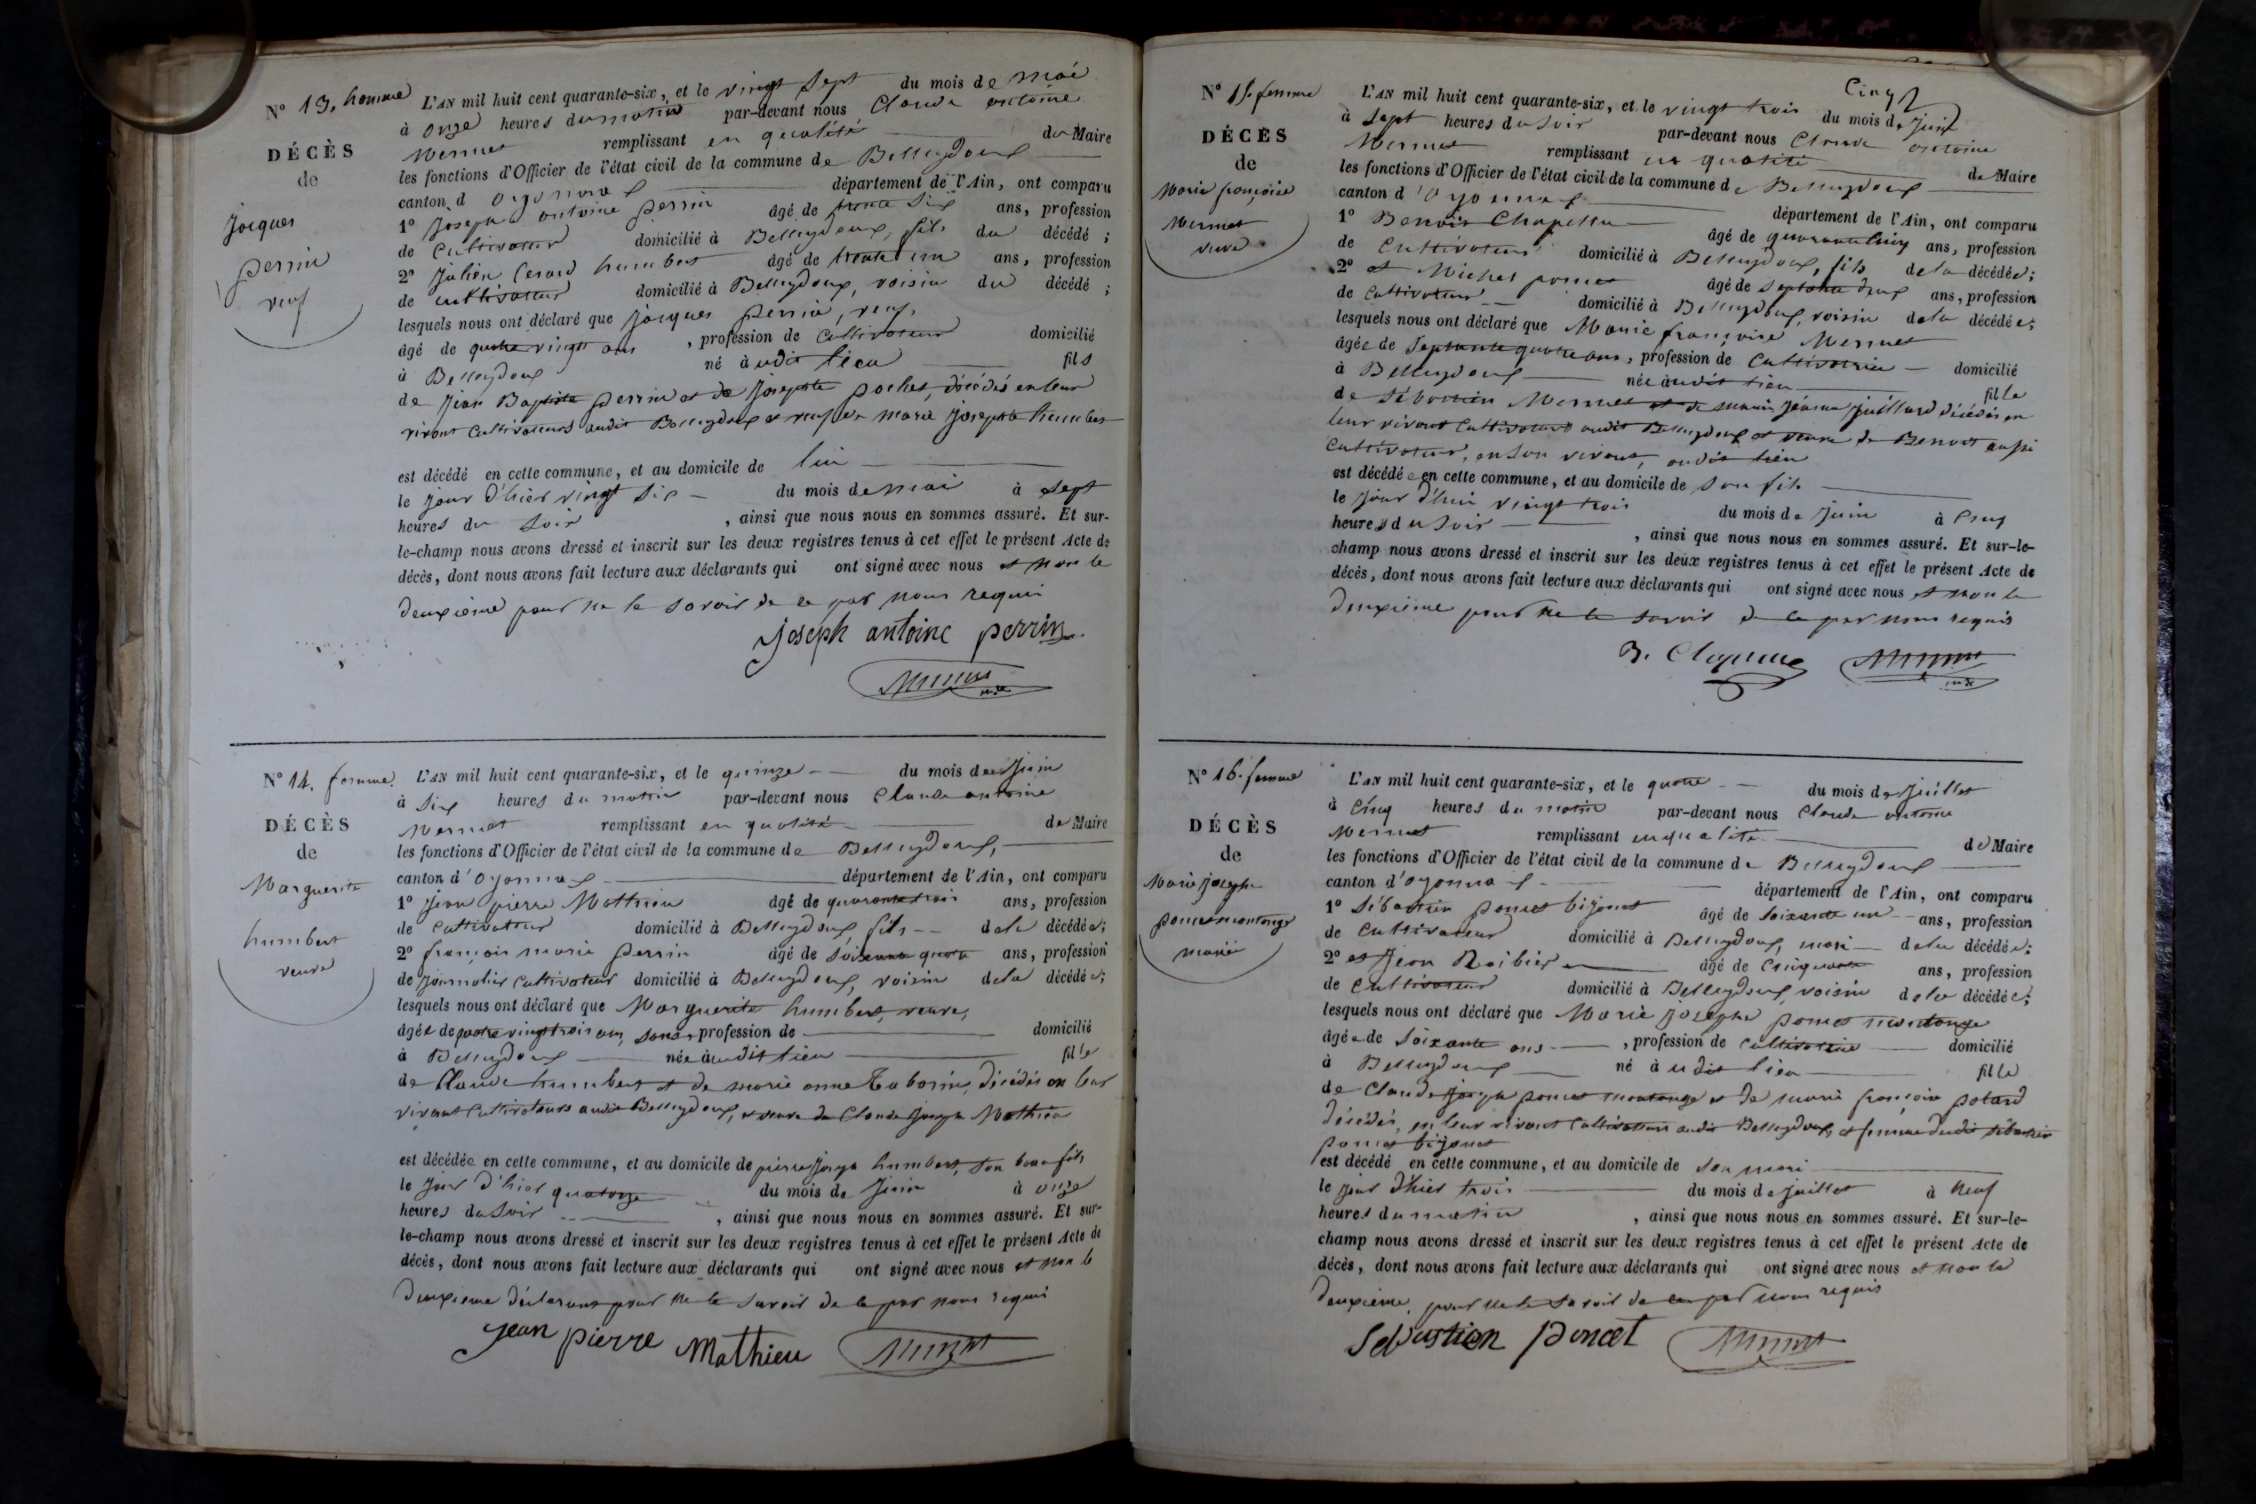 N° 13. homme
DÉCÈS
de
Jacques
perrin
veuf
L'AN mil huit cent quarante-six, et le vingt sept du mois de mai
à onze heures du matin par-devant nous Claude antoine
Mermet remplissant en qualité de Maire
les fonctions d'Officier de l'état civil de la commune de Belleydoux
canton d oyonnax département de l'Ain, ont comparu
1° Joseph antoine perrin âgé de trente six ans, profession
de Cultivateur domicilié à Belleydoux, fils du décédé ;
2° Julien Cerard humbert âgé de trente un ans, profession
de cultivateur domicilié à Belleydoux, voisin du décédé ;
lesquels nous ont déclaré que Jacques perrin, veuf,
âgé de quatre vingts ans , profession de Cultivateur domicilié
à Belleydoux né à udit lieu fils
de Jean Baptiste perrin et de Josephte poches, décédés en leur
vivant Cultivateurs audit Belleydoux et veuf de marie Josephte humbert
est décédé en cette commune, et au domicile de lui
le jour d'hier vingt six du mois de mai à sept
heures du soir , ainsi que nous nous en sommes assuré. Et sur-
le-champ nous avons dressé et inscrit sur les deux registres tenus à cet effet le présent Acte de
décès, dont nous avons fait lecture aux déclarants qui ont signé avec nous et non le
deuxième pour ne le savoir de ce par nous requis
joseph antoine perrin
Mermet
N° 14. femme.
DÉCÈS
de
Marguerite
humbert
veuve
L'AN mil huit cent quarante-six, et le quinze du mois de Juin
à six heures du matin par-devant nous Claude antoine
Mermet remplissant en qualité de Maire
les fonctions d'Officier de l'état civil de la commune de Belleydoux,
canton d'oyonnax département de l'Ain, ont comparu
1° Jean pierre Mathieu âgé de quarante trois ans, profession
de Cultivateur domicilié à Belleydoux fils de la décédée;
2° françois marie perrin âgé de soixante quatre ans, profession
de journalier Cultivateur domicilié à Belleydoux, voisin de la décédée;
lesquels nous ont déclaré que Marguerite humbert, veuve,
âgée de quatre vingt trois ans, sans profession de domicilié
à Belleydoux née audit lieu fille
de Claude humbert et de marie anne Taborin, décédés en leur
vivant Cultivateurs audit Belleydoux, et veuve de Claude Joseph Mathieu
est décédée en cette commune, et au domicile de pierre Joseph humbert, son beau fils
le jour d'hier quatorze du mois de Juin à onze
heures du soir , ainsi que nous nous en sommes assuré. Et sur-
le-champ nous avons dressé et inscrit sur les deux registres tenus à cet effet le présent Acte de
décès, dont nous avons fait lecture aux déclarants qui ont signé avec nous et non le
deuxième déclarant pour ne le savoir de ce par nous requis
jean pierre Mathieu Mermet
Cinq
N° 15. femme
DÉCÈS
de
Marie françoise
Mermet
veuve
L'AN mil huit cent quarante-six, et le vingt trois du mois de Juin
à sept heures du soir par-devant nous Claude antoine
Mermet remplissant en qualité de Maire
les fonctions d'Officier de l'état civil de la commune de Belleydoux
canton d'oyonnax département de l'Ain, ont comparu
1° Benoit Chapellu âgé de quarante cinq ans, profession
de Cultivateur domicilié à Belleydoux, fils de la décédée;
2° et Michel poncet âgé de septante deux ans, profession
de Cultivateur domicilié à Belleydoux, voisin de la décédée;
lesquels nous ont déclaré que Marie françoise Mermet
âgée de septante quatre ans, profession de Cultivatrice domicilié
à Belleydoux née audit lieu fille
de Sébastien Mermet et de marie Jéanne Juillard décédés en
leur vivant Cultivateurs audit Belleydoux et veuve de Benoit aussi
Cultivateur, en son vivant, audit lieu
est décédée en cette commune, et au domicile de son fils
le jour d'hui vingt trois du mois de Juin à cinq
heures du soir , ainsi que nous nous en sommes assuré. Et sur-le-
champ nous avons dressé et inscrit sur les deux registres tenus à cet effet le présent Acte de
décès, dont nous avons fait lecture aux déclarants qui ont signé avec nous et non le
deuxième pour ne le savoir de ce par nous requis
B. Mermet
N° 16. femme
DÉCÈS
de
Marie josephe
poncet montange
mariée
L'AN mil huit cent quarante-six, et le quatre du mois de Juillet
à Cinq heures du matin par-devant nous Claude antoine
Mermet remplissant en qualité de Maire
les fonctions d'Officier de l'état civil de la commune de Belleydoux
canton d'oyonnax département de l'Ain, ont comparu
1° Sébastien poncet bijouet âgé de soixante un ans, profession
de Cultivateur domicilié à Belleydoux, mari de la décédée;
2° et Jean Roibier âgé de Cinquante ans, profession
de Cultivateur domicilié à Belleydoux, voisin de la décédée;
lesquels nous ont déclaré que Marie josephe poncet montange
âgée de soixante ans , profession de Cultivatrice domicilié
à Belleydoux né à udit lieu fille
de Claude Joseph poncet montange et de marie françoise potard
décédés, en leur vivant Cultivateurs audit Belleydoux, et femme dudit sébastien
poncet bijouet
est décédé en cette commune, et au domicile de son mari
le jour d'hier trois du mois de juillet à neuf
heures du matin , ainsi que nous nous en sommes assuré. Et sur-le-
champ nous avons dressé et inscrit sur les deux registres tenus à cet effet le présent Acte de
décès, dont nous avons fait lecture aux déclarants qui ont signé avec nous et non le
deuxième pour ne le savoir de ce par nous requis
Sebustien poncet Mermet